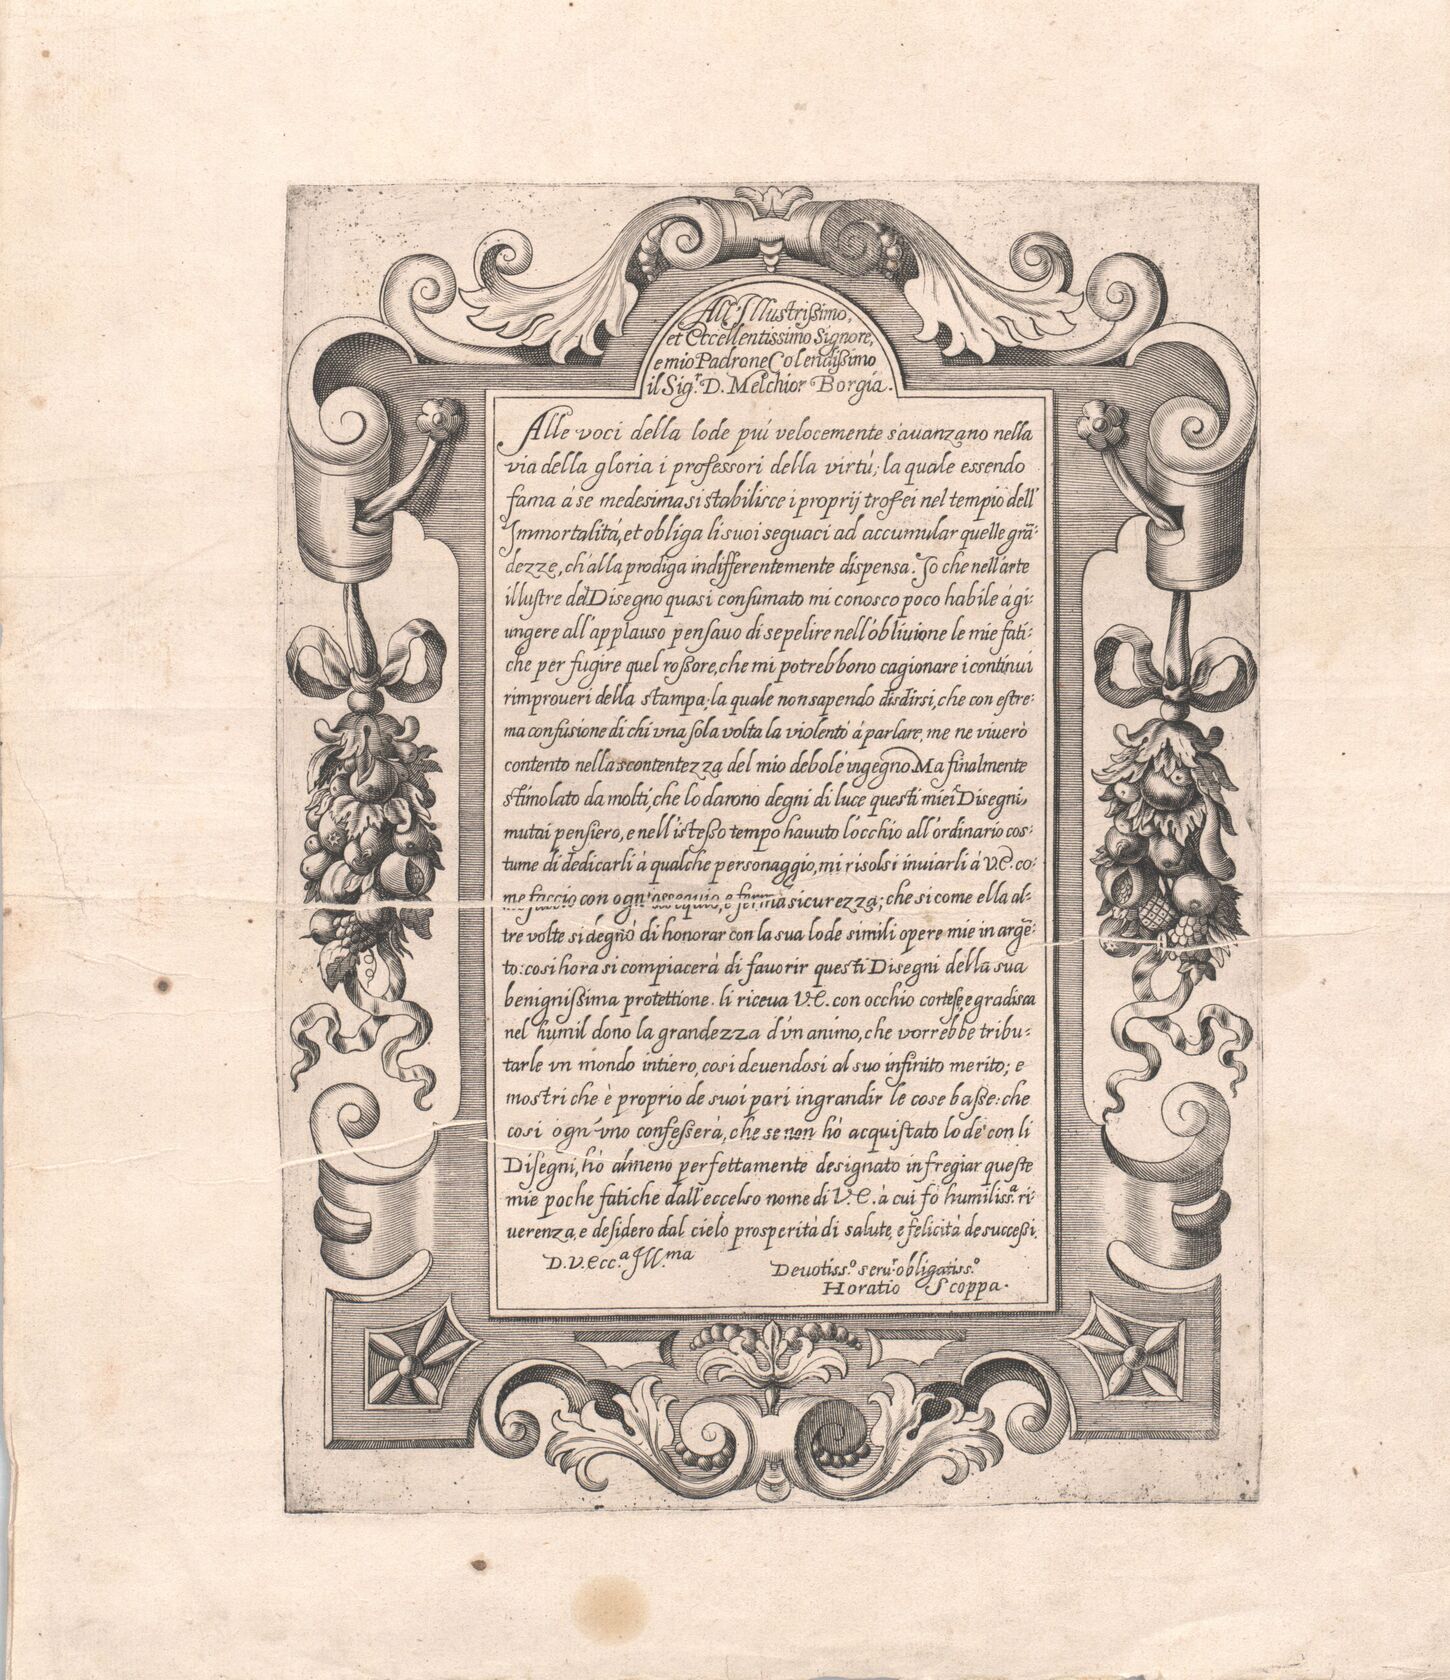 All'Illustrißimo,
et Eccellentissimo Signore,
e mio Padrone Colendißimo
il Sig.r D. Melchior Borgia.
Alle voci della lode piú velocemente s'auanzano nella
via della gloria i professori della virtú; la quale essendo
fama à se medesima si stabilisce i proprij trofei nel tempio dell'
Immortalitá, et obliga li suoi seguaci ad accumular quelle grã:
dezze, ch'alla prodiga indifferentemente dispensa. Io che nell'arte
illustre del Disegno quasi consumato mi conosco poco habile á gi:
ungere all'applauso pensauo di sepelire nell'obliuione le mie fati:
che per fugire quel roßore, che mi potrebbono cagionare i continui
rimproueri della stampa; la quale non sapendo disdirsi, che con estre:
ma confusione di chi vna sola volta la violentò á parlare, me ne viuerò
contento nella scontentezza del mio debole ingegno. Ma finalmente
stimolato da molti, che lo darono degni di luce questi miei Disegni,
mutai pensiero, e nell'isteßo tempo hauuto l'occhio all'ordinario cos:
tume di dedicarli à qualche personaggio, mi risolsi inuiarli á V.E. co:
me faccio con ogn'ossequio, e ferma sicurezza; che si come ella al:
tre volte si degnò di honorar con la sua lode simili opere mie in argẽ:
to: cosi hora si compiacerà di fauorir questi Disegni della sua
benignißima protettione. li riceua V.E. con occhio cortese, e gradisca
nel humil dono la grandezza d'vn animo, che vorrebbe tribu:
tarle vn mondo intiero, cosi deuendosi al suo infinito merito; e
mostri che è proprio de suoi pari ingrandir le cose baße: che
cosi ogn'vno confeßerà, che se non hò acquistato lode con li
Disegni, hò almeno perfettamente designato in fregiar queste
mie poche fatiche dall'eccelso nome di V.E. à cui fò humiliss.a ri:
uerenza, e desidero dal cielo prosperità di salute, e felicità de successi.
D.V. Ecc.a Ill.ma
Deuotiss.o seru.r obligatiss.o
Horatio Scoppa.